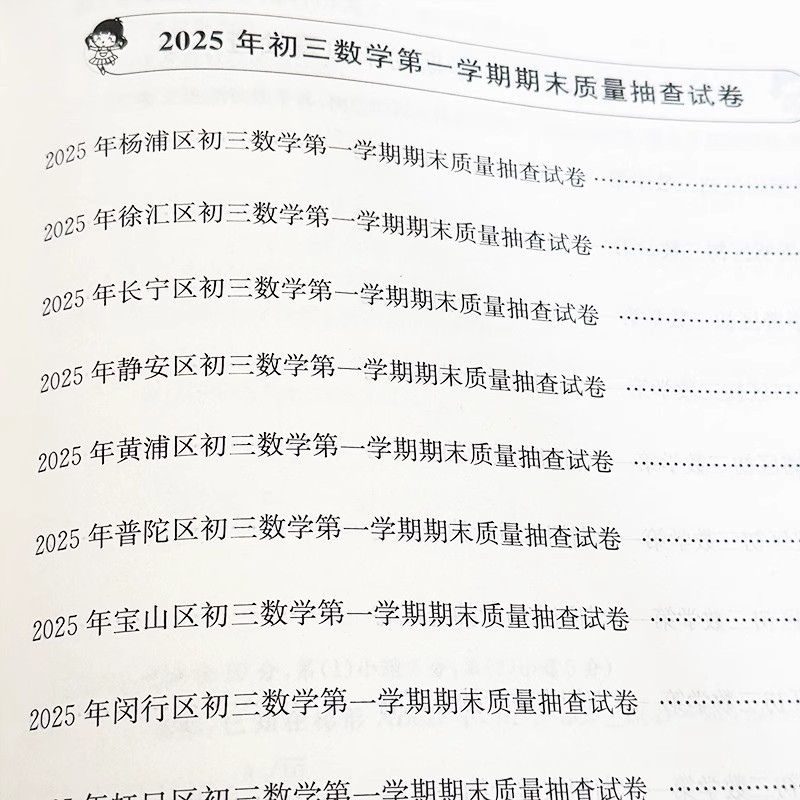 2025年初三数学第一学期期末质量抽查试卷
2025年杨浦区初三数学第一学期期末质量抽查试卷
2025年徐汇区初三数学第一学期期末质量抽查试卷
2025年长宁区初三数学第一学期期末质量抽查试卷
2025年静安区初三数学第一学期期末质量抽查试卷
2025年黄浦区初三数学第一学期期末质量抽查试卷
2025年普陀区初三数学第一学期期末质量抽查试卷
2025年宝山区初三数学第一学期期末质量抽查试卷
2025年闵行区初三数学第一学期期末质量抽查试卷
年虹口区初三数学第一学期期末质量抽查试卷